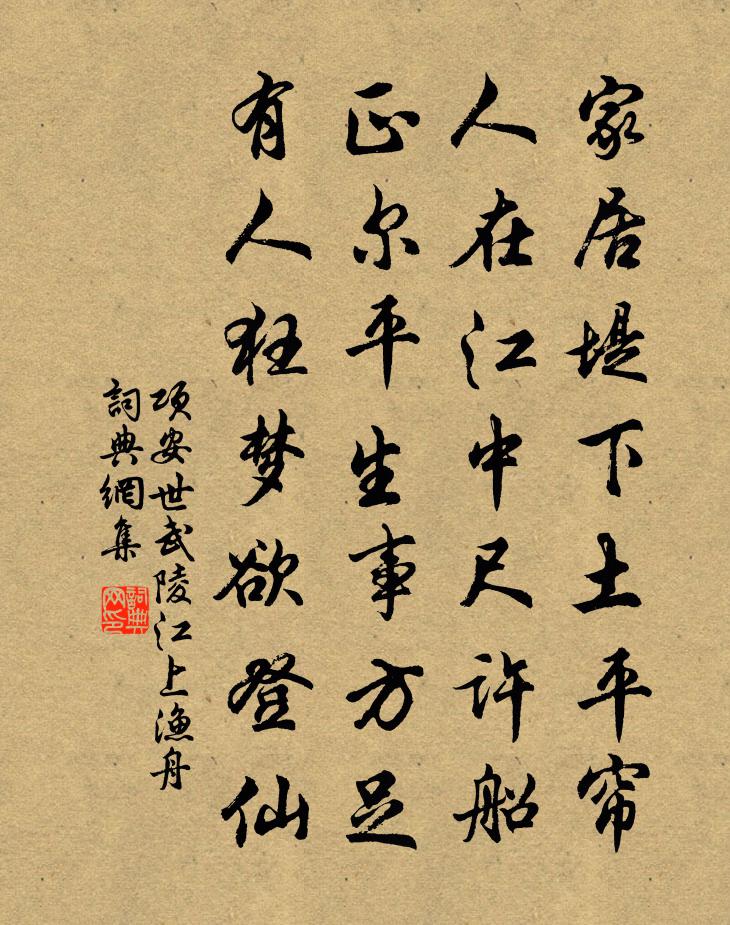 家居堤下土平帘
人在江中尺许船
正尔平生事方足
有人狂梦欲登仙
项安世武陵江上渔舟
詞典網集
詞典网印